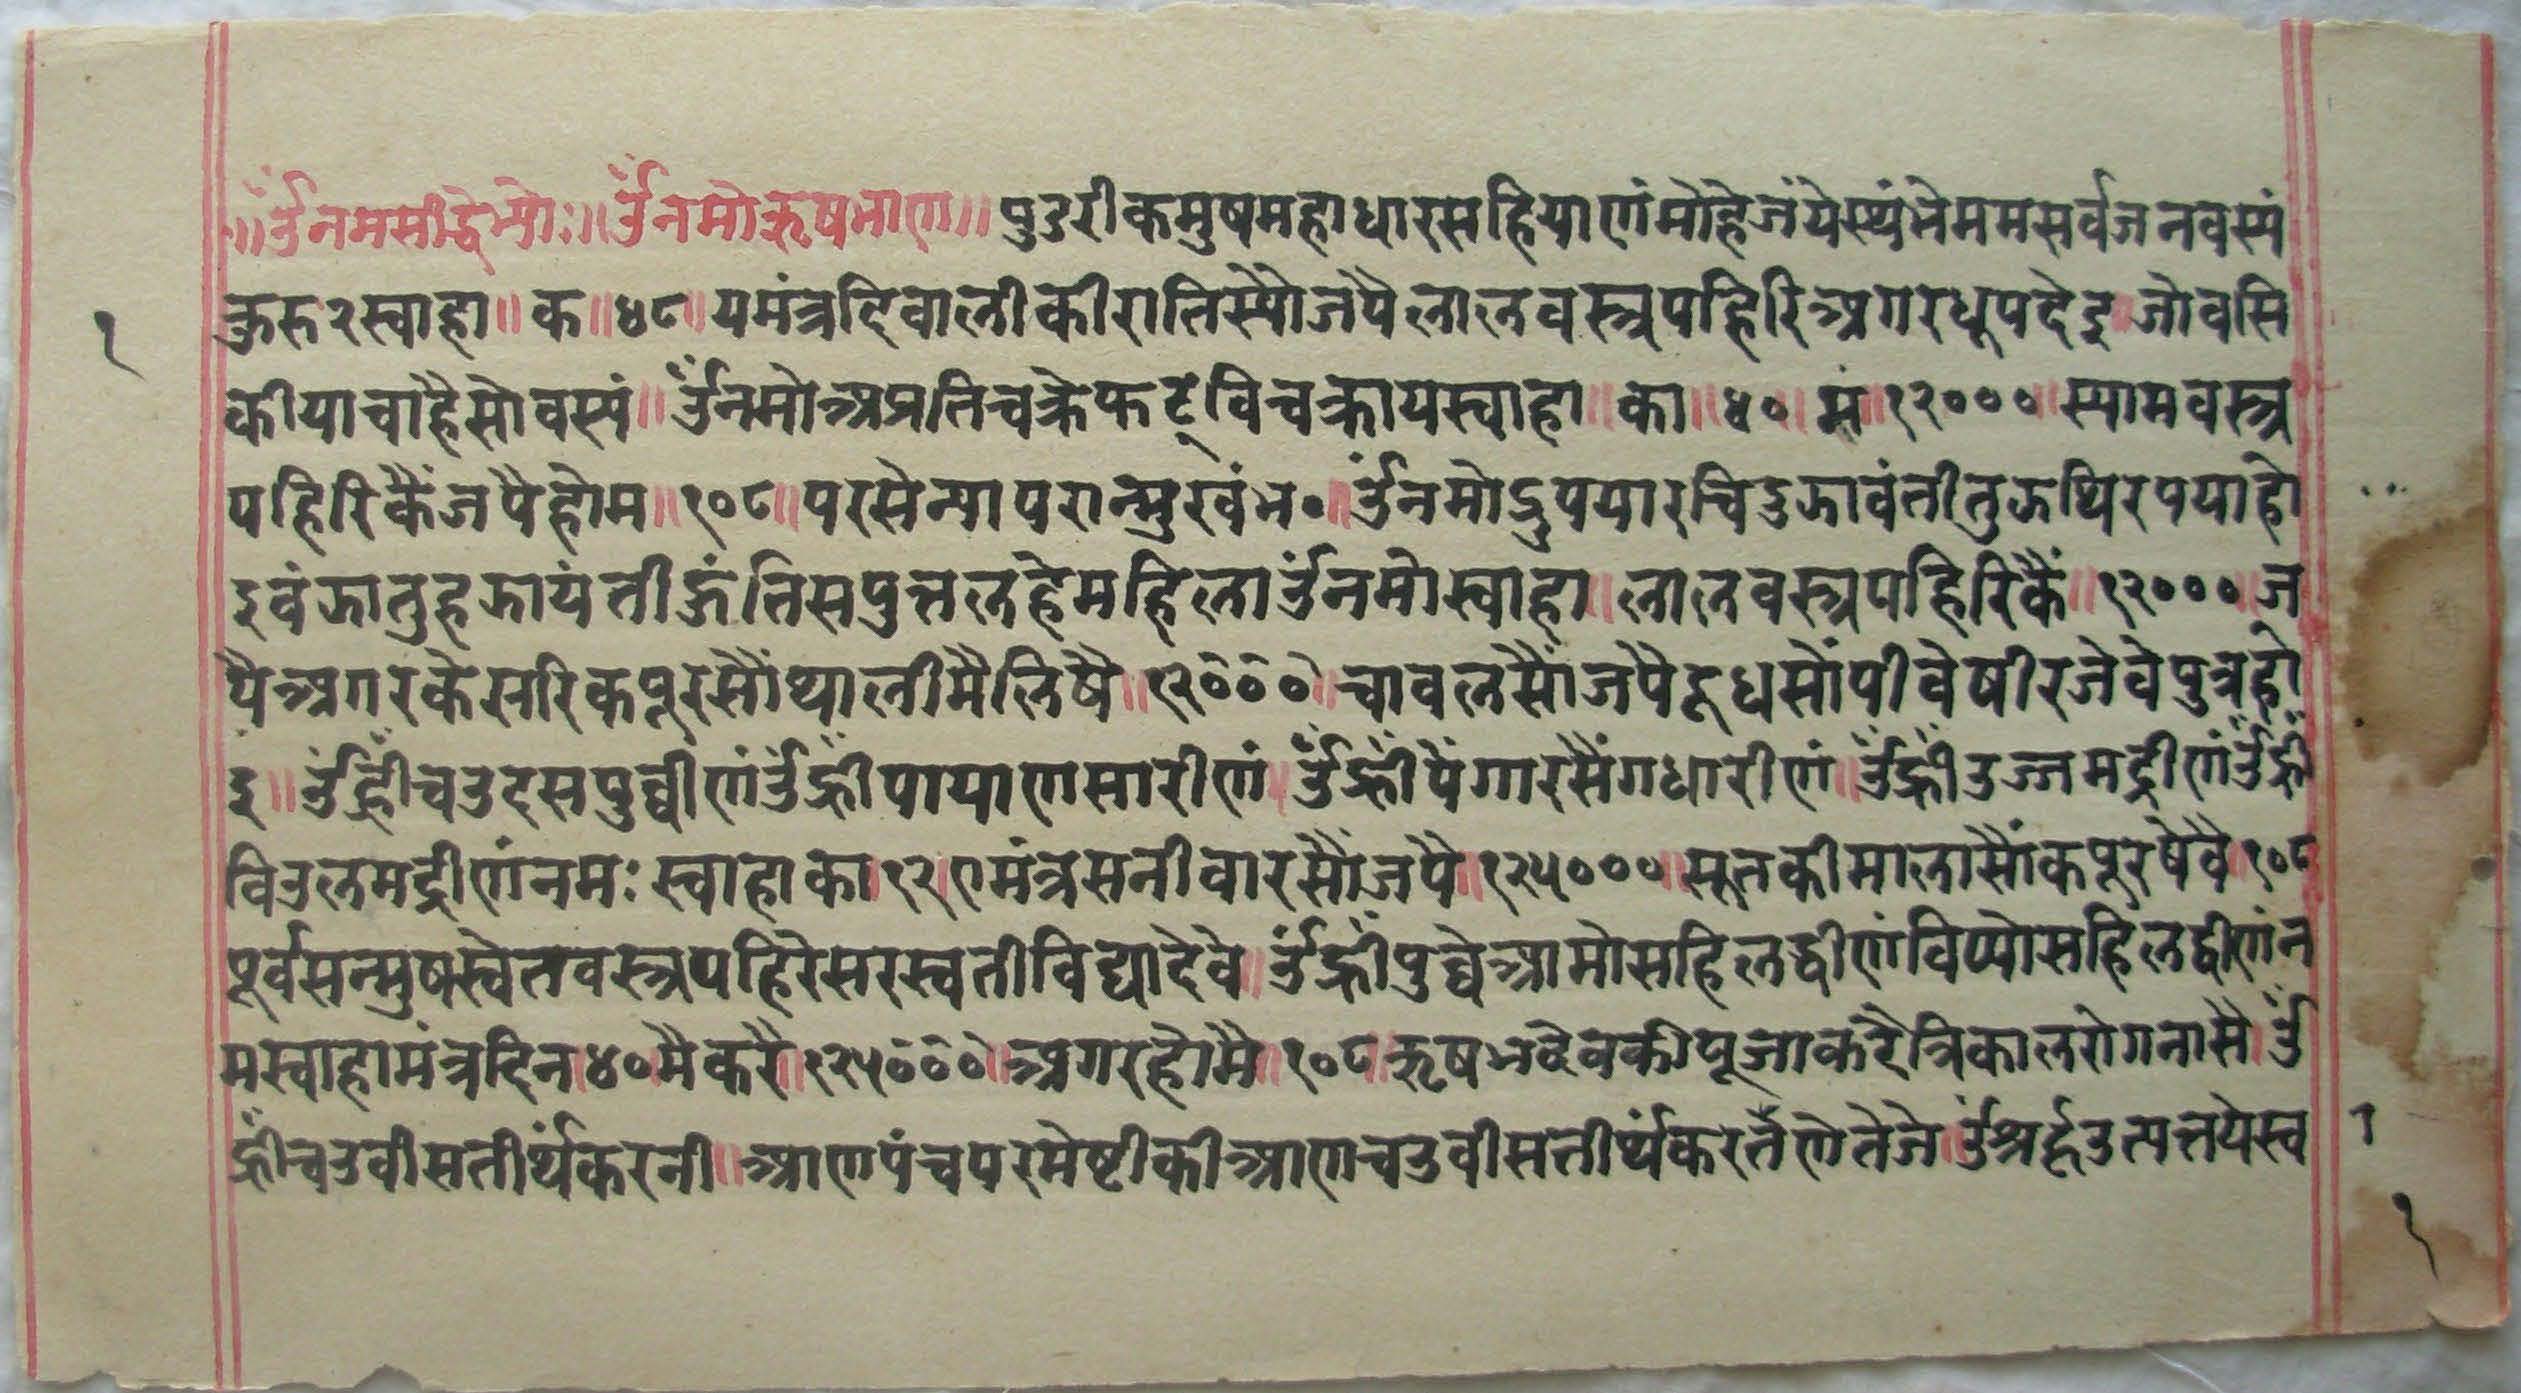 ॥ॐनमसीद्धेभ्योः॥ॐनमोऋषभाण॥पुडरीकमुषमहाधारसहियाणंमोहेजंयेस्थंभेममसर्वजनवस्यं
कुरु२स्वाहा॥क॥४८॥यमंत्रदिवालीकीरातिस्यौजपैलालवस्त्रपहिरिअगरधूपदेइ॥जोवसि
कीयाचाहैसोवस्यं॥ॐनमोअप्रतिचक्रेफट्विचक्रायस्वाहा॥का॥४०॥मं॥१२०००॥स्यामवस्त्र
पहिरिकैंजपैहोम॥१०८॥परसेन्यापरान्मुखंभ०॥ॐनमोदुपयारचिउझावंतीतुऊथिरपयाहो
इवंझातुहझायंतीऊंतिसपुत्तलहेमहिलाॐनमोस्वाहा॥लालवस्त्रपहिरिकैं॥१२०००॥ज
पैअगरकेसरिकपूरसौंथालीमैलिषै॥१२०००॥चावलसौंजपैदूधसोंपीवेषीरजेवेपुत्रहो
इ॥ॐह्रींचउदसपुव्वीणंॐह्रींपायाणसारीणं॥ॐह्रींपैंगारसैंगधारीणं॥ॐह्रींउज्जमद्रीणंॐह्रीं
विउलमद्रीणंनमःस्वाहाका॥१२॥एमंत्रसनीवारसौंजपै॥१२५०००॥सूतकीमालासौंकपूरषेवै॥१०८
पूर्वसन्मुषस्वेतवस्त्रपहिरेसरस्वतीविद्यादेवे॥ॐह्रींपुव्वेआमोसहिलद्धीणंविप्पोसहिलद्धीणंन
मस्वाहामंत्रदिन॥४०मैकरै॥१२५०००॥अगरहोमै॥१०८॥ऋषभदेवकीपूजाकरैत्रिकालरोगनासै॥ॐ
ह्रींचउवीसतीर्थंकरनी॥आणपंचपरमेष्टीकीआणचउवीसतीर्थंकरतैणेतेजे॥ॐअर्हउत्पत्तयेस्व
१
१